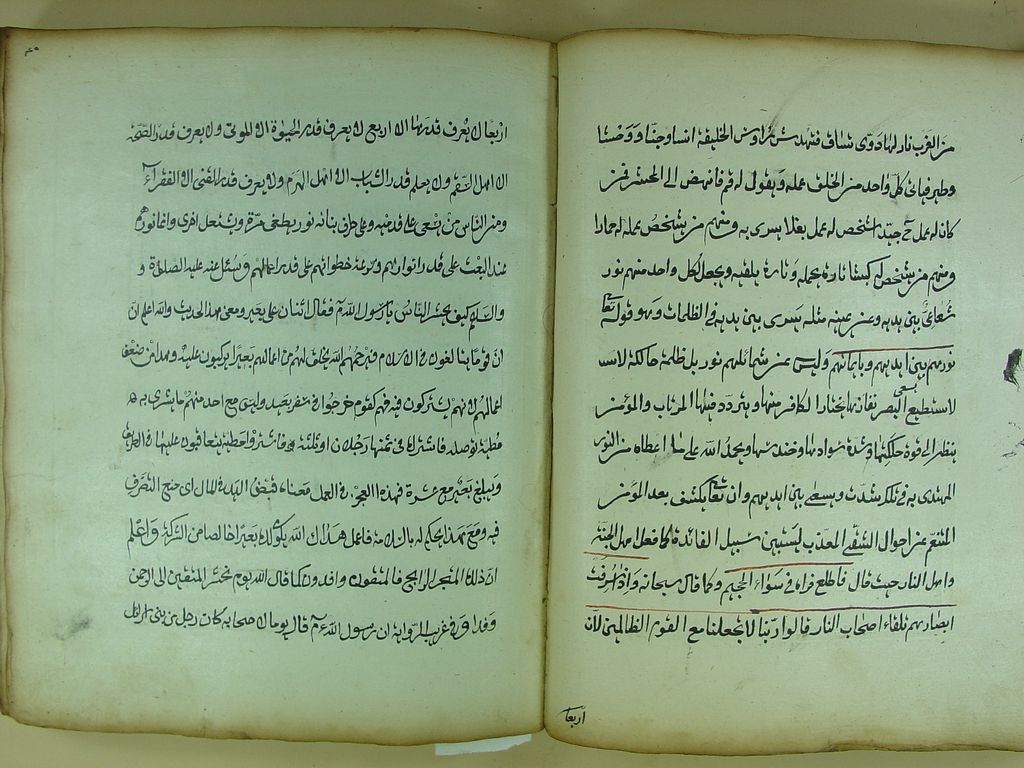 من الغرب نار لها دوى تساق فتدهش رؤوس الخليقة انسا وجنا و وحشا
وطير فياتى كل واحد من الخلق عمله ويقول له قم فانهض الى المحشر فمن
كان له عمل ح جيد شخص له عمل بغلا يسرى به ومنهم من يشخص عمله له حمارا
ومنهم من يشخص له كبشا تارة يحمله وتارة يلقيه ويجعل لكل واحد منهم نور
شعاعى بين يديه وعن يمينه مثله يسرى بين يديه فى الظلمات وهو قوله تعا
يسعى
نورهم بين ايديهم وبايمانهم وليس عن شمائلهم نور بل ظلمة حالكة لا
لا يستطيع البصر نفاذها يحتار الكافر فيها ويتردد فيها المرتاب والمؤمن
ينظر الى قوة حلكتها وشدة سوادها ويحمد الله على ما اعطاه من النور
المهتدى به فى تلك شدت ويسعى بين ايديهم وان تعا يكشف بعد المؤمن
المتنعم عن احوال الشقى المعذب ليستبين سبيل الفائدة كما فعل اهل الجنة
واهل النار حيث قال فاطلع فراه فى سواء الجحيم وكما قال سبحانه واذا صرفت
ابصارهم تلقاء اصحاب النار قالوا ربنا لا تجعلنا مع القوم الظالمين لان
اربعا
اربعا لا يعرف قدرها الا اربع لا يعرف قدر الحيوة الا الموتى ولا يعرف قدر الصحة
الا اهل السقم ولا يعلم قدر الشباب الا اهل الهرم ولا يعرف قدر الغنى الا الفقراء
ومن الناس من يسعى على قدميه وعلى طرف بنانه نور يطفى مرة ويشتعل اخرى وانما نورهم
عند البعث على قدر ايمانهم وسرعة خطواتهم على قدر اعمالهم وسئل عنه عليه الصلوة و
والسلام كيف يحشر الناس يا رسول الله م فقال اثنان على بعير ومعنى هذا الحديث والله اعلم ان
ان قوما يأتلفون فى الاسلام فترحمهم الله يخلق لهم من اعمالهم بعيرا يركبون عليه وهذا من ضعف
اعمالهم لانهم يشتركون فيه فهم كقوم خرجوا فى سفر بعيد وليس مع احد منهم ما يشرى به
مطية توصله فاشترك فى ثمنها رجلان او ثلثة فاشتروا مطية يتعاقبون عليها فى الطريق
ويبلغ بعير مع عشرة فهذا العمل معناه قبض اليد فى المال اى منع التصرف
فيه ومع هذا يحكم له بالسلامة فاعمل هداك الله يكون لك بعيرا خالصا من الشركة واعلم
ان ذلك المتجر الرابح فالمتقون وافدون كما قال الله يوم نحشر المتقين الى الرحمن
وفدا ورد فى غريب الرواية ان رسول الله م قال يوما لاصحابه كان رجل من بنى اسرائيل